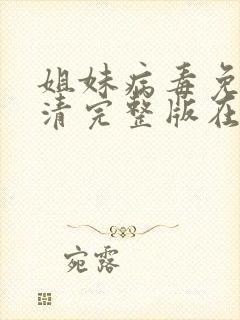 姐妹病毒免
清完整版在
宛露